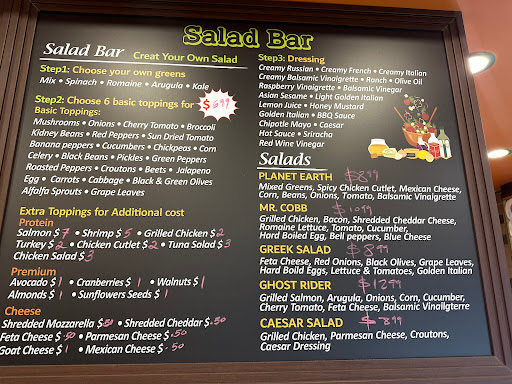 Salad Bar
Salad Bar Creat Your Own Salad
Step1: Choose your own greens
Mix • Spinach • Romaine • Arugula • Kale
Step2: Choose 6 basic toppings for $6.99
Basic Toppings:
Mushrooms • Onions • Cherry Tomato • Broccoli
Kidney Beans • Red Peppers • Sun Dried Tomato
Banana peppers • Cucumbers • Chickpeas • Corn
Celery • Black Beans • Pickles • Green Peppers
Roasted Peppers • Croutons • Beets • Jalapeno
Egg • Carrots • Cabbage • Black & Green Olives
Alfalfa Sprouts • Grape Leaves
Extra Toppings for Additional cost
Protein
Salmon $7 • Shrimp $5 • Grilled Chicken $2
Turkey $2 • Chicken Cutlet $2 • Tuna Salad $3
Chicken Salad $3
Premium
Avocado $1 • Cranberries $1 • Walnuts $1
Almonds $1 • Sunflowers Seeds $1
Cheese
Shredded Mozzarella $.50 • Shredded Cheddar $.50
Feta Cheese $.50 • Parmesan Cheese $.50
Goat Cheese $1 • Mexican Cheese $.50
Step3: Dressing
Creamy Russian • Creamy French • Creamy Italian
Creamy Balsamic Vinaigrette • Ranch • Olive Oil
Raspberry Vinaigrette • Balsamic Vinegar
Asian Sesame • Light Golden Italian
Lemon Juice • Honey Mustard
Golden Italian • BBQ Sauce
Chipotle Mayo • Caesar
Hot Sauce • Sriracha
Red Wine Vinegar
Salads
PLANET EARTH $8.99
Mixed Greens, Spicy Chicken Cutlet, Mexican Cheese,
Corn, Beans, Onions, Tomato, Balsamic Vinaigrette
MR. COBB $10.99
Grilled Chicken, Bacon, Shredded Cheddar Cheese,
Romaine Lettuce, Tomato, Cucumber,
Hard Boiled Egg, Bell peppers, Blue Cheese
GREEK SALAD $8.99
Feta Cheese, Red Onions, Black Olives, Grape Leaves,
Hard Boild Eggs, Lettuce & Tomatoes, Golden Italian
GHOST RIDER $12.99
Grilled Salmon, Arugula, Onions, Corn, Cucumber,
Cherry Tomato, Feta Cheese, Balsamic Vinailgterre
CAESAR SALAD $8.99
Grilled Chicken, Parmesan Cheese, Croutons,
Caesar Dressing